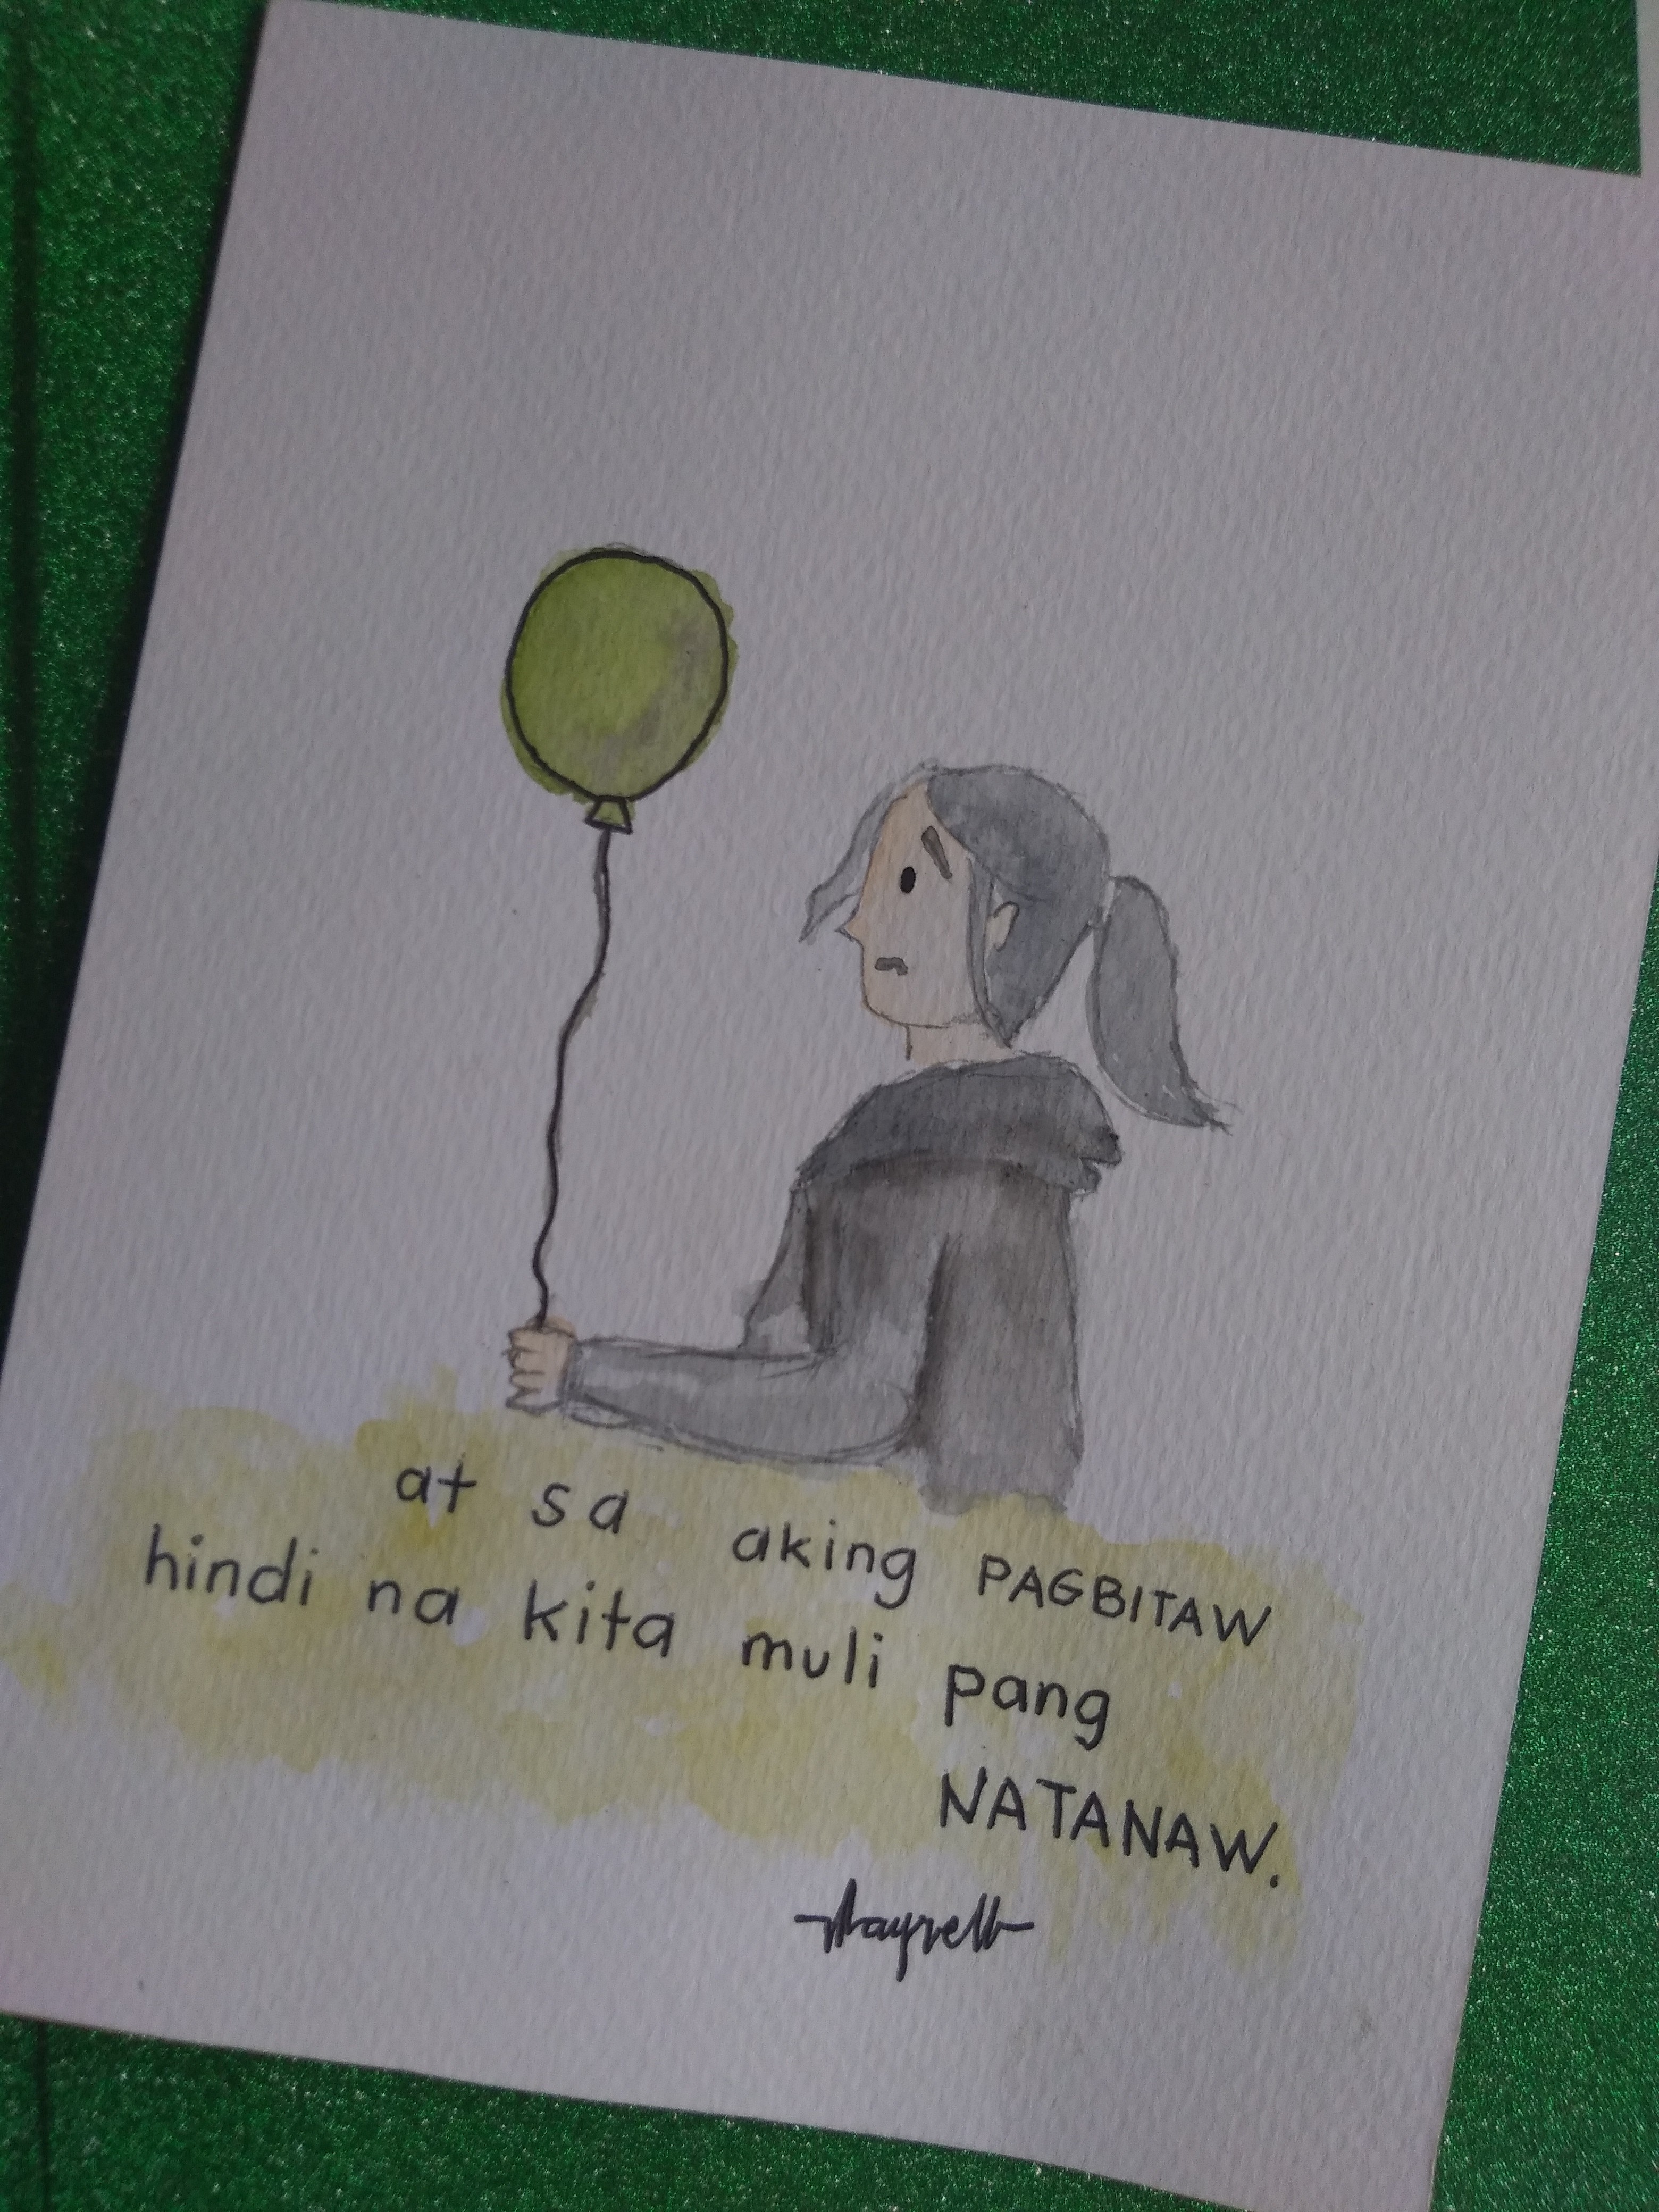 at sa aking PAGBITAW
hindi na kita muli pang
NATANAW.